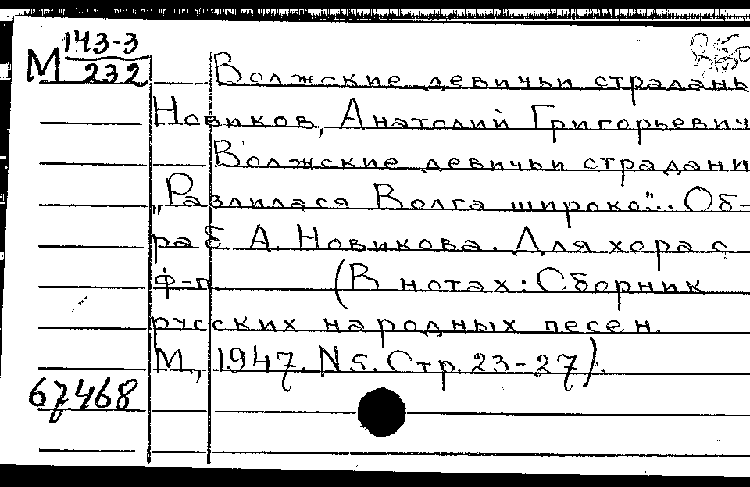 М 143-3
232
Волжские девичьи страдань
Новиков, Анатолий Григорьевич
Волжские девичьи страдани
„Разлилася Волга широко". Об-
раб А. Новикова. Для хора с
ф-п (В нотах: Сборник
русских народных песен.
М., 1947. N 5. Стр. 23-27).
67468